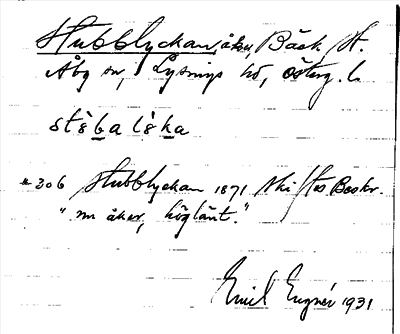 Stubblyckan, åker, Bäck St.
Åby sn, Lysings hd, Österg. l.
stèba lèka
306 Stubblyckan 1871 Skiftes Beskr.
"nu åker, höglänt."
Emil Engnér 1931